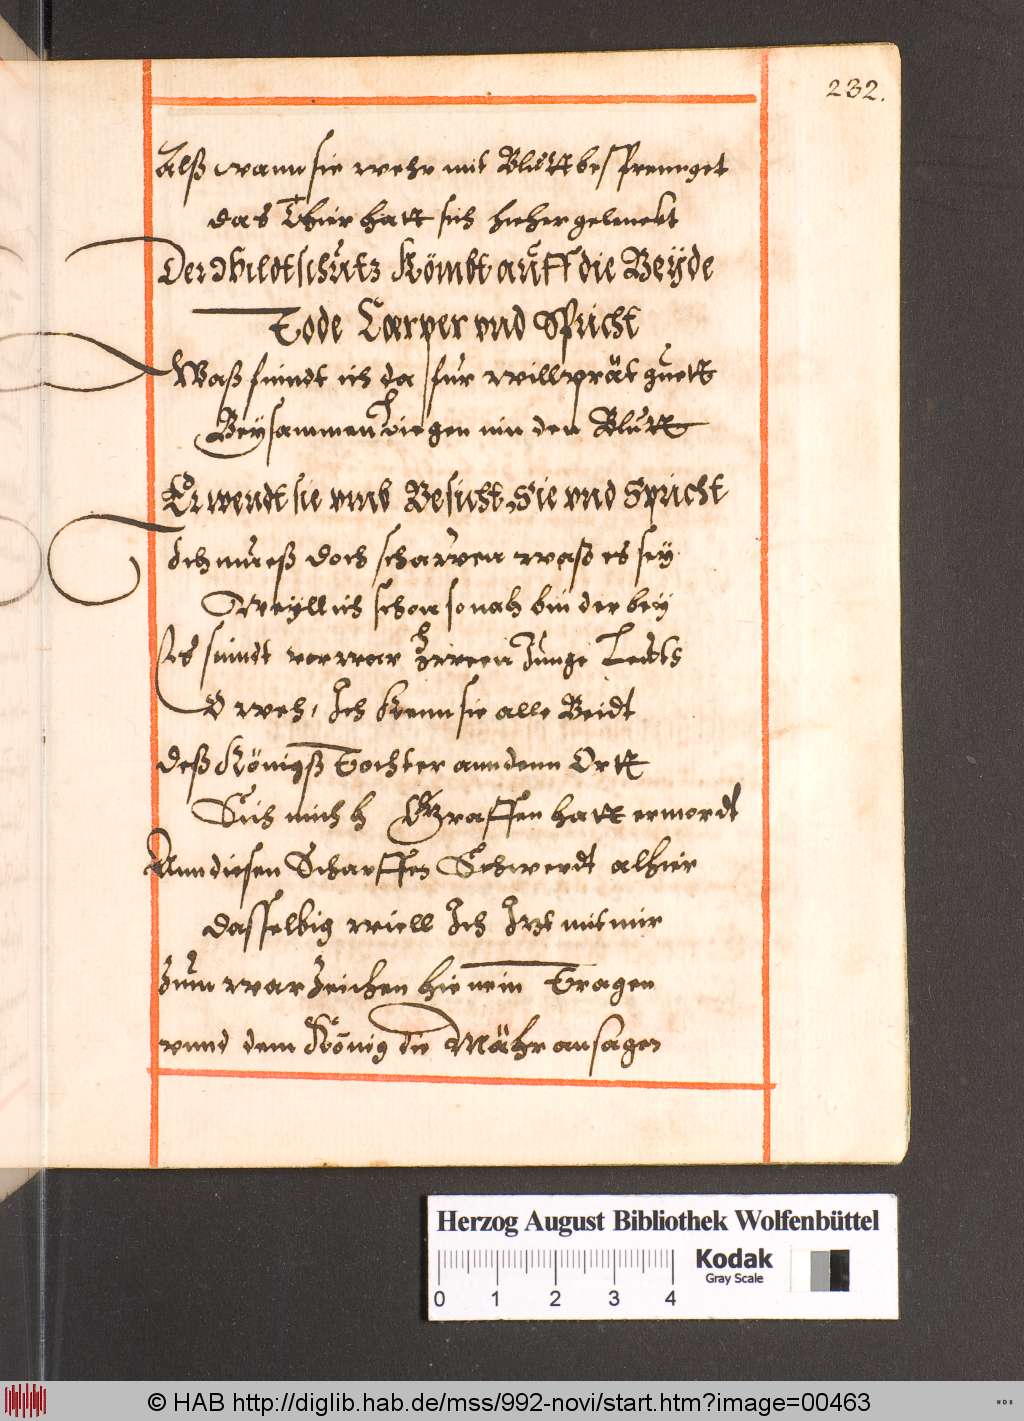 232.
Alß wann sie wehr mit Bluett besprennget
das Thier hatt sich hieher gelenckt
Der Wildtschütz Kömbt auff die Beyde
Tode Cörper vnd Spricht
Waß findt ich da für willprät guett
Beysammen liegen inn den Bluett
Er wendt sie vmb Besicht Sie vnd Spricht
Ich mueß doch schawen waß es sey
Weyll ich schon so nah bin der bey
Es sindt vorwar zween Junge Leüth
O weh, Ich kenn sie alle Beidt
deß Königß Tochter ann denn Ortt
Sich mich h Graffen hatt ermordt
Ann diesen Scharffen Schwerdt alhier
dasselbig wiell Ich Jtzt mit mir
Zum warzeichen hienein Tragen
vnnd dem König die Mähr ansagen
Herzog August Bibliothek Wolfenbüttel
Kodak
Gray Scale
0 1 2 3 4
© HAB http://diglib.hab.de/mss/992-novi/start.htm?image=00463